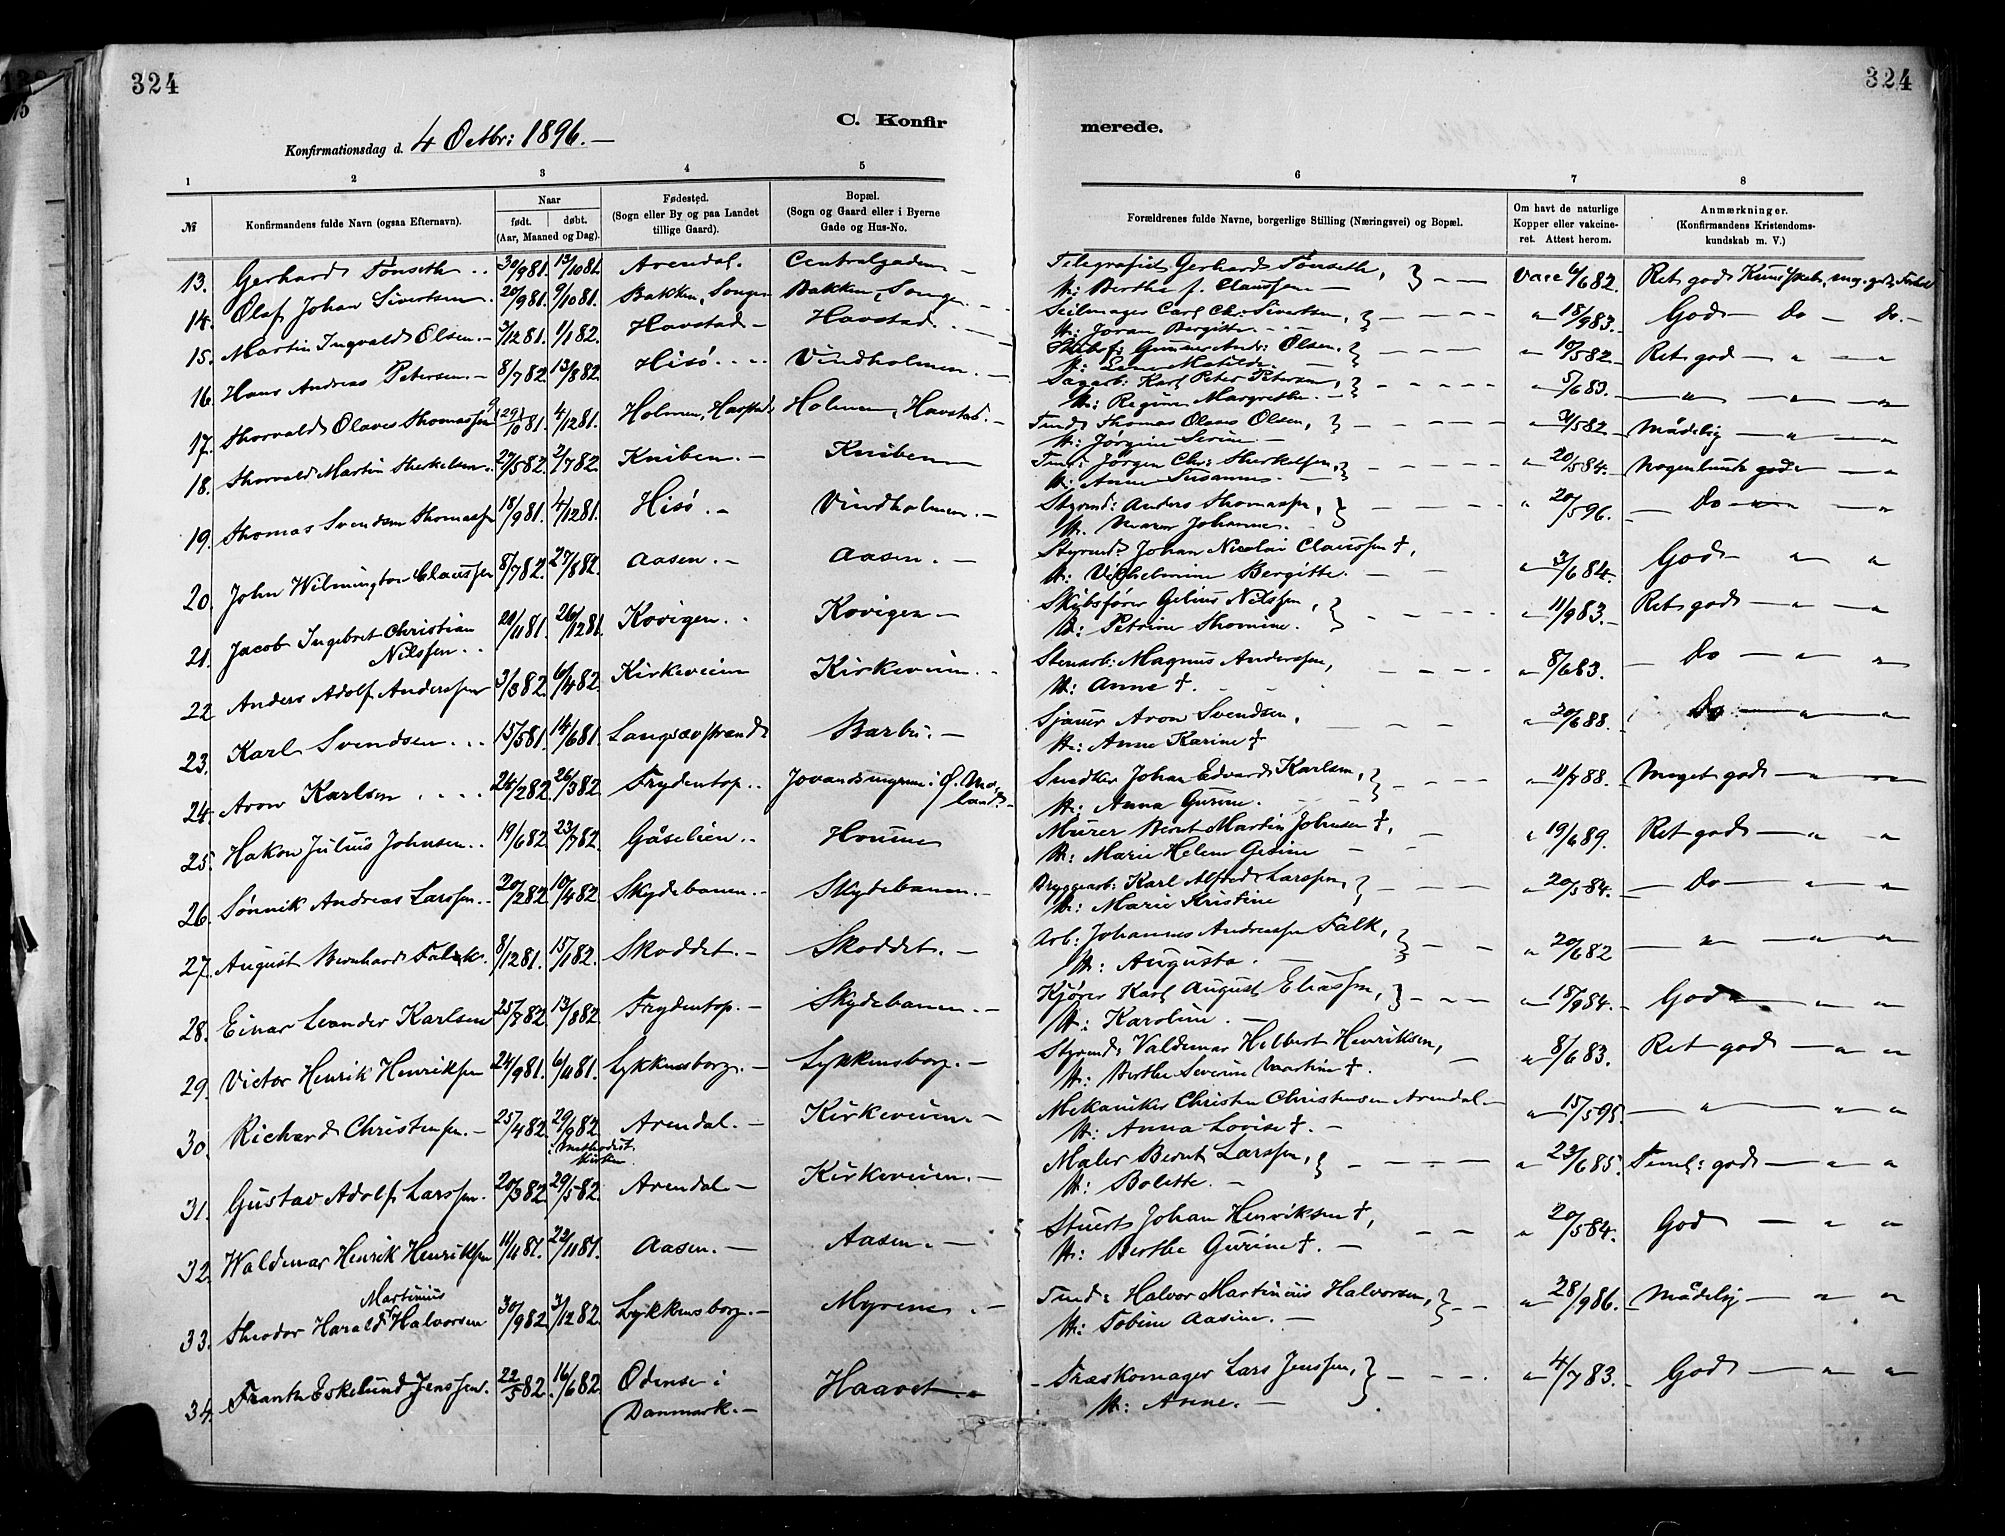 324
324
C. Konfir
merede.
Konfirmationsdag d. 4 Octbr: 1896.—
1 2 3 4 5 6 7 8
№
Konfirmandens fulde Navn (ogsaa Efternavn).
Naar
født. døbt.
(Aar, Maaned og Dag).
Fødested.
(Sogn eller By og paa Landet
tillige Gaard).
Bopæl.
(Sogn og Gaard eller i Byerne
Gade og Hus-No.
Forældrenes fulde Navne, borgerlige Stilling (Næringsvei) og Bopæl.
Om havt de naturlige
Kopper eller vakcine-
ret. Attest herom.
Anmærkninger.
(Konfirmandens Kristendoms-
kundskab m. V.)
13. Gerhard Tønseth 30/9 81. 13/10 81. Arendal. Centralgaden — Telegrafist Gerhard Tønseth, Vacc 6/6 82. Ret god Kundskab, meg. god Forhold
H: Berthe f. Claussen —
14. Olaf Johan Sivertsen. 20/9 81. 9/10 81. Bakken, Songe Bakken, Songe. Seilmager Carl Chr: Sivertsen, " 18/9 83. God — Do — Do.
H: Joran Bergitte.
15. Martin Ingvald Olsen. 3/12 81. 1/1 82. Havstad — Havstad. Skibsf: Gunner Andr: Olsen. " 10/5 82. Ret god — " — "
H: Lene Matilde
16. Hans Andreas Petersen. — 8/7 82. 13/8 82. Hisö Vindholmen. — Sagarb: Karl Peter Petersen, " 5/6 83. — " — " — "
H: Regine Margrethe. —
17. Thorvald Olaves Thomassen 29/10 81. 4/12 81. Holmen, Havstad Holmen, Havstad. — Tømd: Thomas Olaves Olsen, " 31/5 82 — Mådelig — " — "
H: Jørgine Serine —
18. Thorvald Martin Therkelsen. 27/5 82. 2/7 82. Kniben. — Kniben — Tømd: Jørgen Chr: Therkelsen, " 20/5 84. — Nogenlunde god — "
H: Anne Susanne. —
19. Thomas Svendsen Thomassen 18/9 81. 4/12 81. Hisö. — Vindholmen. — Styrmd: Anders Thomassen, " 20/5 96. — Do — " — "
H. Maren Johanne.
20. John Wilmington Claussen 8/7 82. 27/8 82. Aasen. — Aasen. — Styrmd: Johan Nicolai Claussen †, " 3/6 84. God — " — "
H: Vilhelmine Bergitte. —
21. Jacob Ingebret Christian 21/11 81. 26/12 81. Kovigen. Kovigen — Skibsfører Gelius Nilssen, " 11/9 83. — Ret god — " — "
Nilssen. H: Petrine Thomine.
22 Anders Adolf Anderssen 3/3 82. 6/4 82. Kirkeveien Kirkeveien. Stenarb: Magnus Anderssen, " 8/6 83. — Do — " — "
H: Anne †.
23. Karl Svendsen 15/5 81. 14/6 81. Langsævstrand Barbu. — Sjauer Aron Svendsen, " 20/6 88. Do — " — "
H: Anne Karine †
24. Aron Karlsen 24/2 82. 26/3 82. Frydentop. Jovandsmyrene i Ø. Mo- Snedker Johan Edvard Karlsen, " 11/7 88. Meget god — " — "
land. — H: Anna Gurine.
25. Hakon Julius Johnsen. 19/6 82. 23/7 82. Gåselien. Houene Murer Bernt Martin Johnsen †, " 19/6 89. Ret god — " — "
H: Marie Helene Gesine —
26. Sønnik Andreas Larssen. 20/2 82. 10/4 82. Skydebanen. Skydebanen. — Bryggearb: Karl Alfred Larssen, " 20/5 84. — Do — " — "
H: Marie Kristine
27. August Bernhard Falck. 8/12 81. 15/1 82. Skoddet. — Skoddet. — Arb: Johannes Andreassen Falk, " 20/6 82 — " — " — "
H: Augusta. —
28. Einar Leander Karlsen 25/7 82. 13/8 82. Frydentop. — Skydebanen. — Kjører Karl August Eliassen, " 18/9 84. God — " — "
H: Karoline. —
29. Victor Henrik Henriksen 24/9 81. 6/11 81. Lykkensborg. — Lykkensborg. — Styrmd: Valdemar Helbert Henriksen, " 8/6 83. Ret god — " — "
H: Berthe Severine Martine †.
30. Richard Christensen. — 25/4 82. 29/9 82. Arendal. — Kirkeveien. — Mekaniker Christen Christensen Arendal — " 15/5 95. — " — " — "
Methodist
Kirken H: Anna Lovise †. —
31. Gustav Adolf Larssen. 20/3 82. 29/5 82. Arendal. — Kirkeveien. — Maler Bernt Larssen, " 23/6 85. Teml: god — " — "
H: Bolette. —
32. Waldemar Henrik Henriksen 11/11 81. 22/11 81. Aasen. — Aasen. — Stuert Johan Henriksen †, " 20/5 84. God — " — "
H: Berthe Gurine †. —
Martinius
33. Theodor Harald Halvorsen 30/9 82. 3/12 82. Lykkensborg. — Myrene. — Tømd: Halvor Martinius Halvorsen, " 28/9 86. — Mådelig — " — "
H: Tobine Aasine. —
34. Frantz Eskelund Jenssen. 22/5 82. 16/6 82. Odense i Haavet. — Træskomager Lars Jenssen, " 4/7 83. God — " — "
Danmark. — H: Anne. —